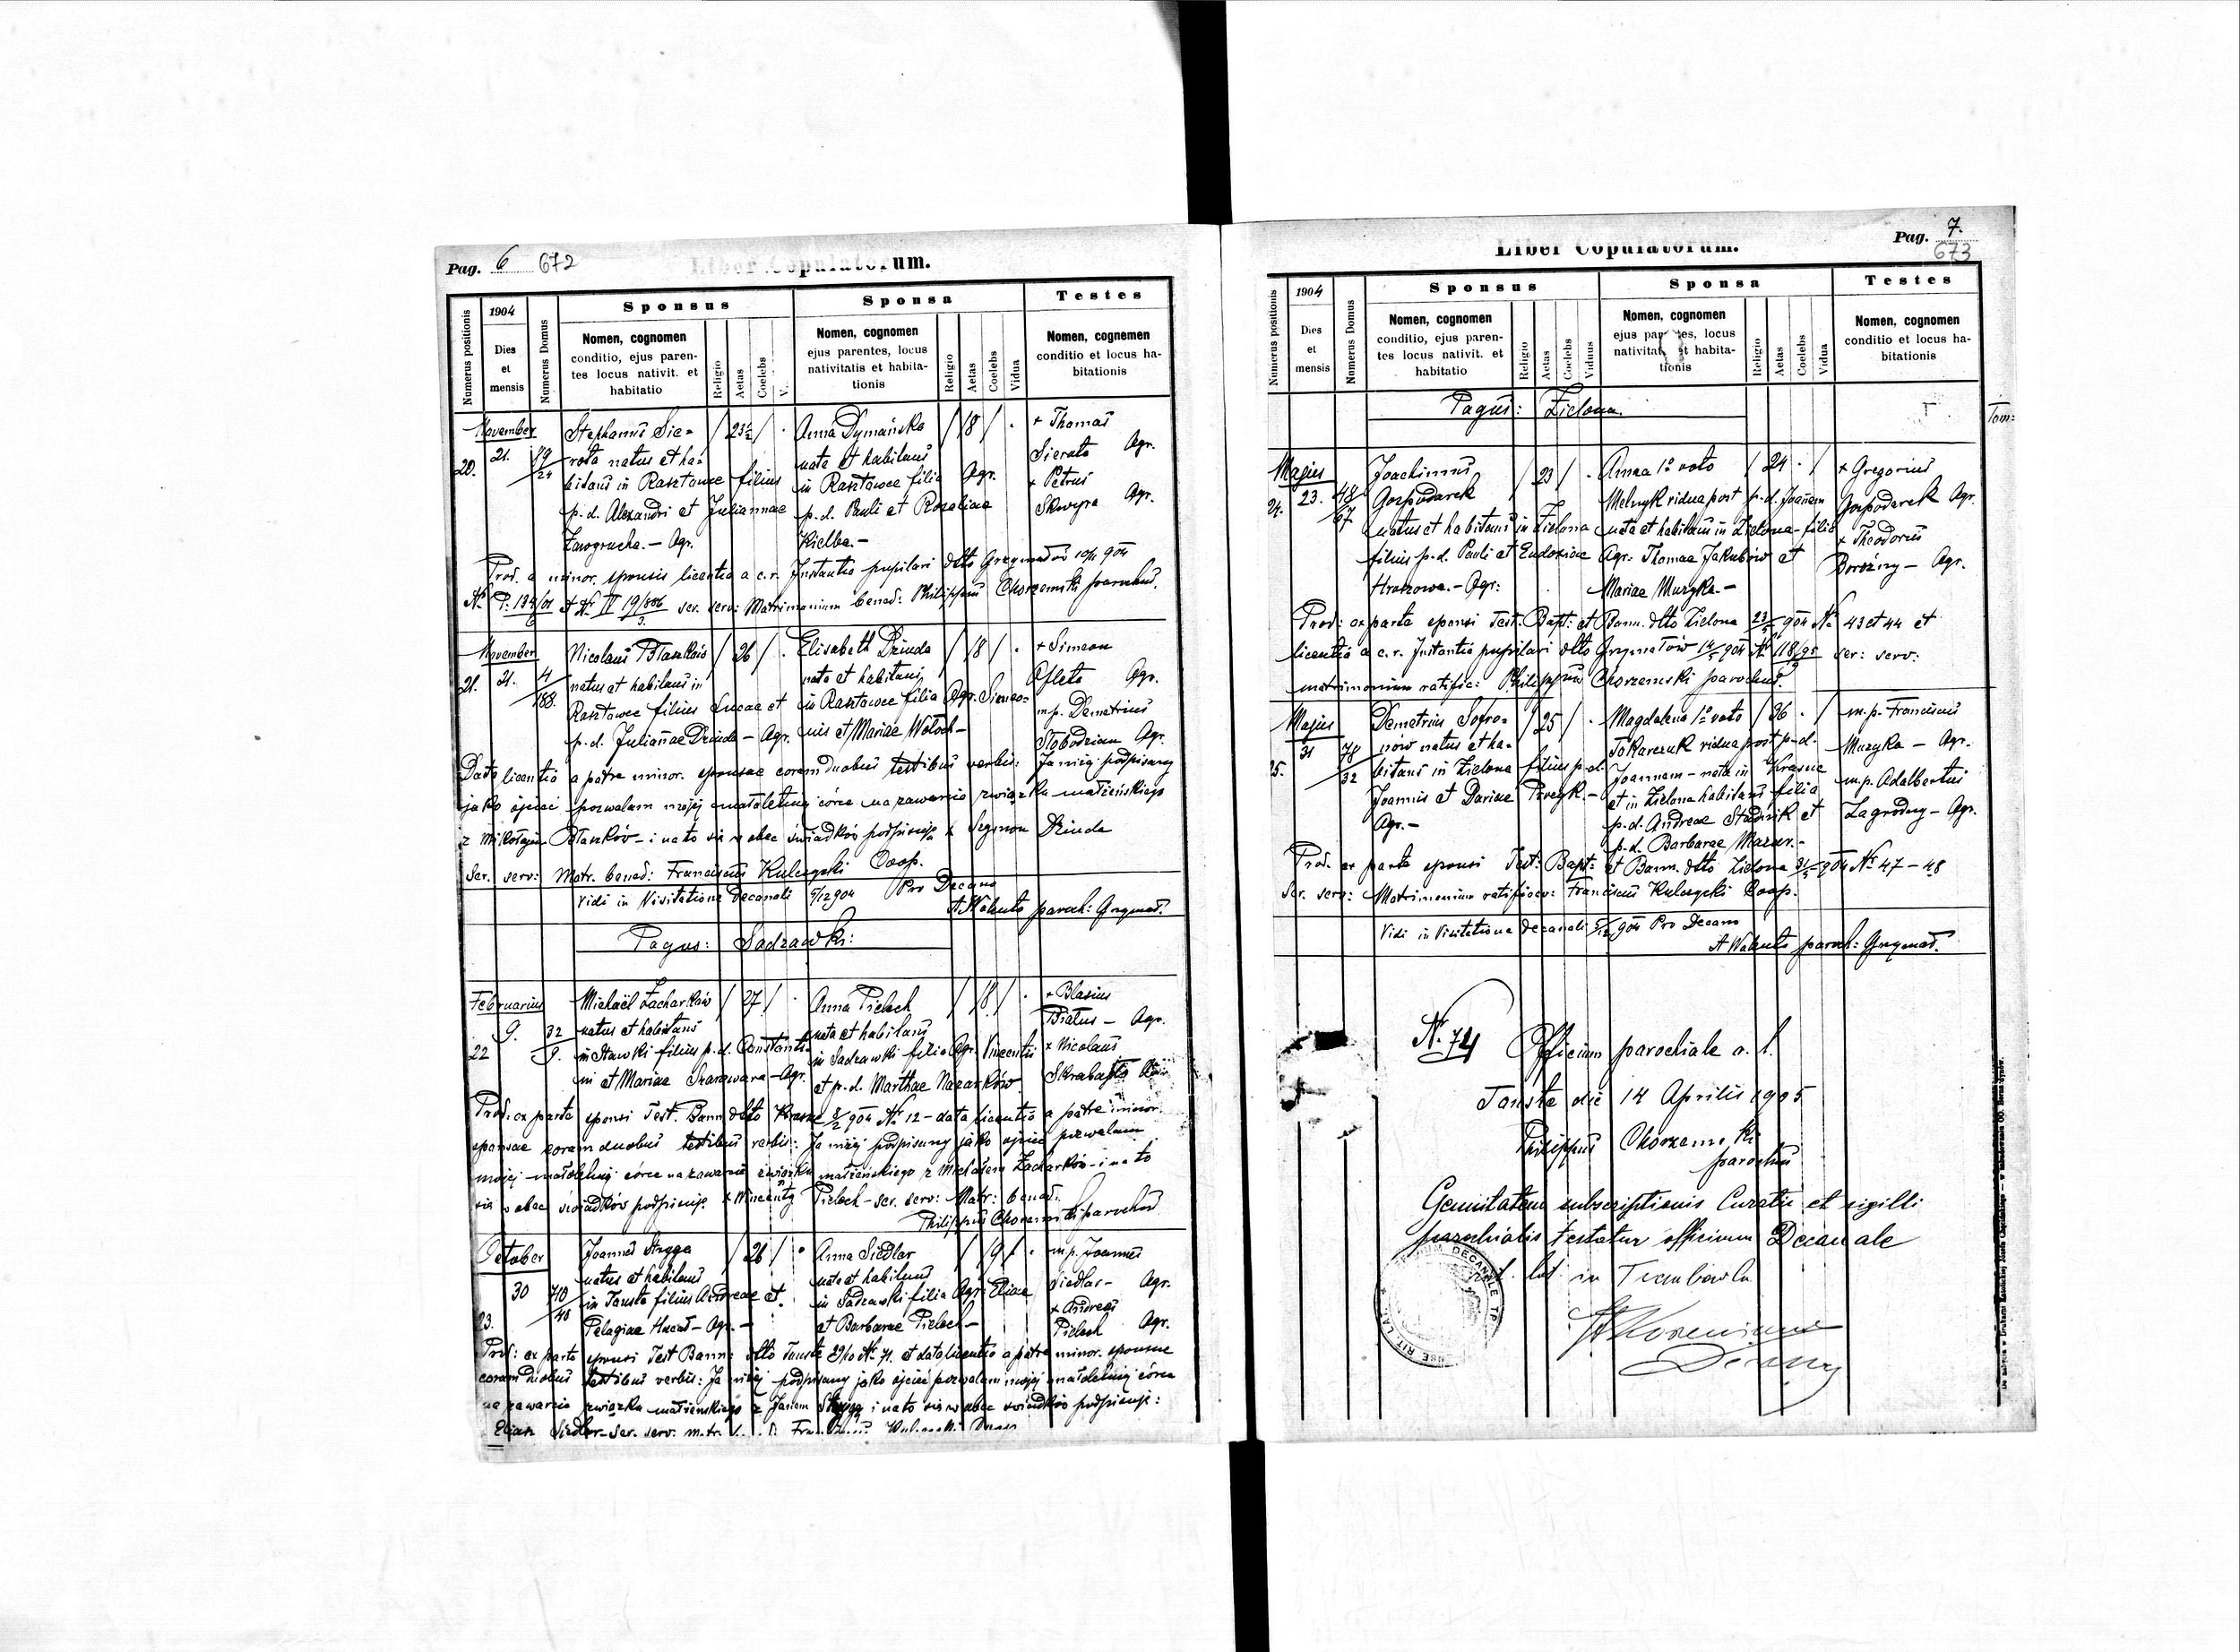 Pag. 6 672
Liber Copulatorum.
Numerus positionis
1904
Dies
et
mensis
Numerus Domus
Sponsus
Nomen, cognomen
conditio, ejus paren-
tes locus nativit. et
habitatio
Religio
Aetas
Coelebs
V.
Sponsa
Nomen, cognomen
ejus parentes, locus
nativitatis et habita-
tionis
Religio
Aetas
Coelebs
Vidua
Testes
Nomen, cognemen
conditio et locus ha-
bitationis
November
20. 21. 19/24
Stephanus Sie-
rota natus et ha-
bitans in Rasztowce filius
p. d. Alexandri et Juliannae
Zawgrucha. – Agr.
23½
Anna Dymańska
nata et habitans
in Rasztowce filia Agr.
p. d. Pauli et Rozaliae
Kielba. –
18
+ Thomas
Sierota Agr.
+ Petrus
Skwyra Agr.
Prod. a minor. sponsis licentia a c. r. Instantia pupilari dtto Grzymałów 10/11 904
ser. serv: Matrimonium bened: Philippus Chorzemski parochus.
November
21. 21. 4/188.
Nicolaus Błaszków
natus et habitans in
Rasztowce filius Lucae et
p. d. Juliannae Dziuda – Agr.
26
Elisabeth Dziuda
nata et habitans
in Rasztowce filia Agr. Simeo-
nis et Mariae Wołoch –
18
+ Simeon
Ofleta Agr.
m. p. Demetrius
Słobodzian Agr.
Data licentia a patre minor. sponsae coram duobus testibus verbis: Ja niżej podpisany
jako ojciec pozwalam mojej małoletniej córce na zawarcie związku małżeńskiego
z Mikołajem Błaszków – i na to się w obec świadków podpisuję + Szymon Dziuda
Ser. serv: Matr. bened: Franciscus Kulczycki Coop.
Vidi in Visitatione Decanali 5/12 904 Pro Decano
A Walenta paroch: Grzymał.
Pagus: Sadzawki:
Februarius
22 9. 32/9.
Michaël Zacharków
natus et habitans
in Stawki filius p. d. Constanti-
ni et Mariae Szarawara – Agr.
27
Anna Pieloch
nata et habitans
in Sadzawki filia Agr. Vincentii
et p. d. Marthae Nazarków
18
+ Blasius
Białus – Agr.
+ Nicolaus
Skrabajło
Prod: ex parte sponsi Test. Bann. dtto Krasne 8/2 904 № 12 – data licentia a patre minor.
sponsae coram duobus testibus verbis: Ja niżej podpisany jako ojciec pozwalam
mojej małoletniej córce na zawarcie związku małżeńskiego z Michałem Zacharków – i na to
się w obec świadków podpisuję. + Wincenty Pieloch – ser. serv: Matr: bened:
Philippus Chorzemski parochus
October
23. 30 70/48
Joannes Stryga
natus et habitans
in Touste filius Andreae et
Pelagiae Hucał – Agr. –
26
Anna Siedlar
nata et habitans
in Sadzawki filia Agr. Eliae
et Barbarae Pieloch –
19
m. p. Joannes
Siedlar – Agr.
+ Andreas
Pieloch Agr.
Prod: ex parte sponsi Test Bann: dtto Touste 29/10 № 71. et data licentia a patre minor. sponsae
coram duobus testibus verbis: Ja niżej podpisany jako ojciec pozwalam mojej małoletniej córce
na zawarcie związku małżeńskiego z Janem Stryga i na to się w obec świadków podpisuję:
Eliasz Siedlar – Ser. serv: matr.
Pag. 7.
673
Liber Copulatorum.
Numerus positionis
1904
Dies
et
mensis
Numerus Domus
Sponsus
Nomen, cognomen
conditio, ejus paren-
tes locus nativit. et
habitatio
Religio
Aetas
Coelebs
Viduus
Sponsa
Nomen, cognomen
ejus parentes, locus
nativitatis et habita-
tionis
Religio
Aetas
Coelebs
Vidua
Testes
Nomen, cognomen
conditio et locus ha-
bitationis
Pagus: Zielona.
Tom:
Majus
24. 23. 48/67
Joachimus
Gospodarek
natus et habitans in Zielona
filius p. d. Pauli et Eudoxiae
Hraszowa. – Agr:
23
Anna 1º voto
Melnyk vidua post p. d. Joannem
nata et habitans in Zielona – filia
Agr: Thomae Jakubów et
Mariae Muzyka. –
24
+ Gregorius
Gospodarek Agr.
+ Theodorus
Borózny – Agr.
Prod: ex parte sponsi Test: Bapt: et Bann. dtto Zielona 23/5 904 № 43 et 44 et
licentia a c. r. Instantia pupilari dtto Grzymałów 14/5 904 № 118/95 ser: serv:
matrimonium ratific: Philippus Chorzemski parochus.
Majus
25. 31 78/32
Demetrius Sofro-
nów natus et ha-
bitans in Zielona filius p. d.
Joannis et Dariae Brezyk. –
Agr. –
25
Magdalena 1º voto
Tokarczuk vidua post p. d.
Joannem – nata in Krasne
et in Zielona habitans filia
p. d. Andreae Stadnik et
p. d. Barbarae Mazur. –
36
m. p. Franciscus
Muzyka – Agr.
m. p. Adalbertus
Zagrodny – Agr.
Prod. ex parte sponsi Test: Bapt: et Bann. dtto Zielona 31/5 904 № 47 – 48
Ser. serv: Matrimonium ratificav: Franciscus Kulczycki Coop.
Vidi in Visitatione Decanali 5/12 904 Pro Decano
A Walenta paroch: Grzymał.
№. 74 Officium parochiale r. l.
Touste die 14 Aprilis 1905
Philippus Chorzemski
parochus
Genuitatem subscriptionis Curatii et sigilli
parochialis testatur officium Decanale
rit. lat. in Trembowla